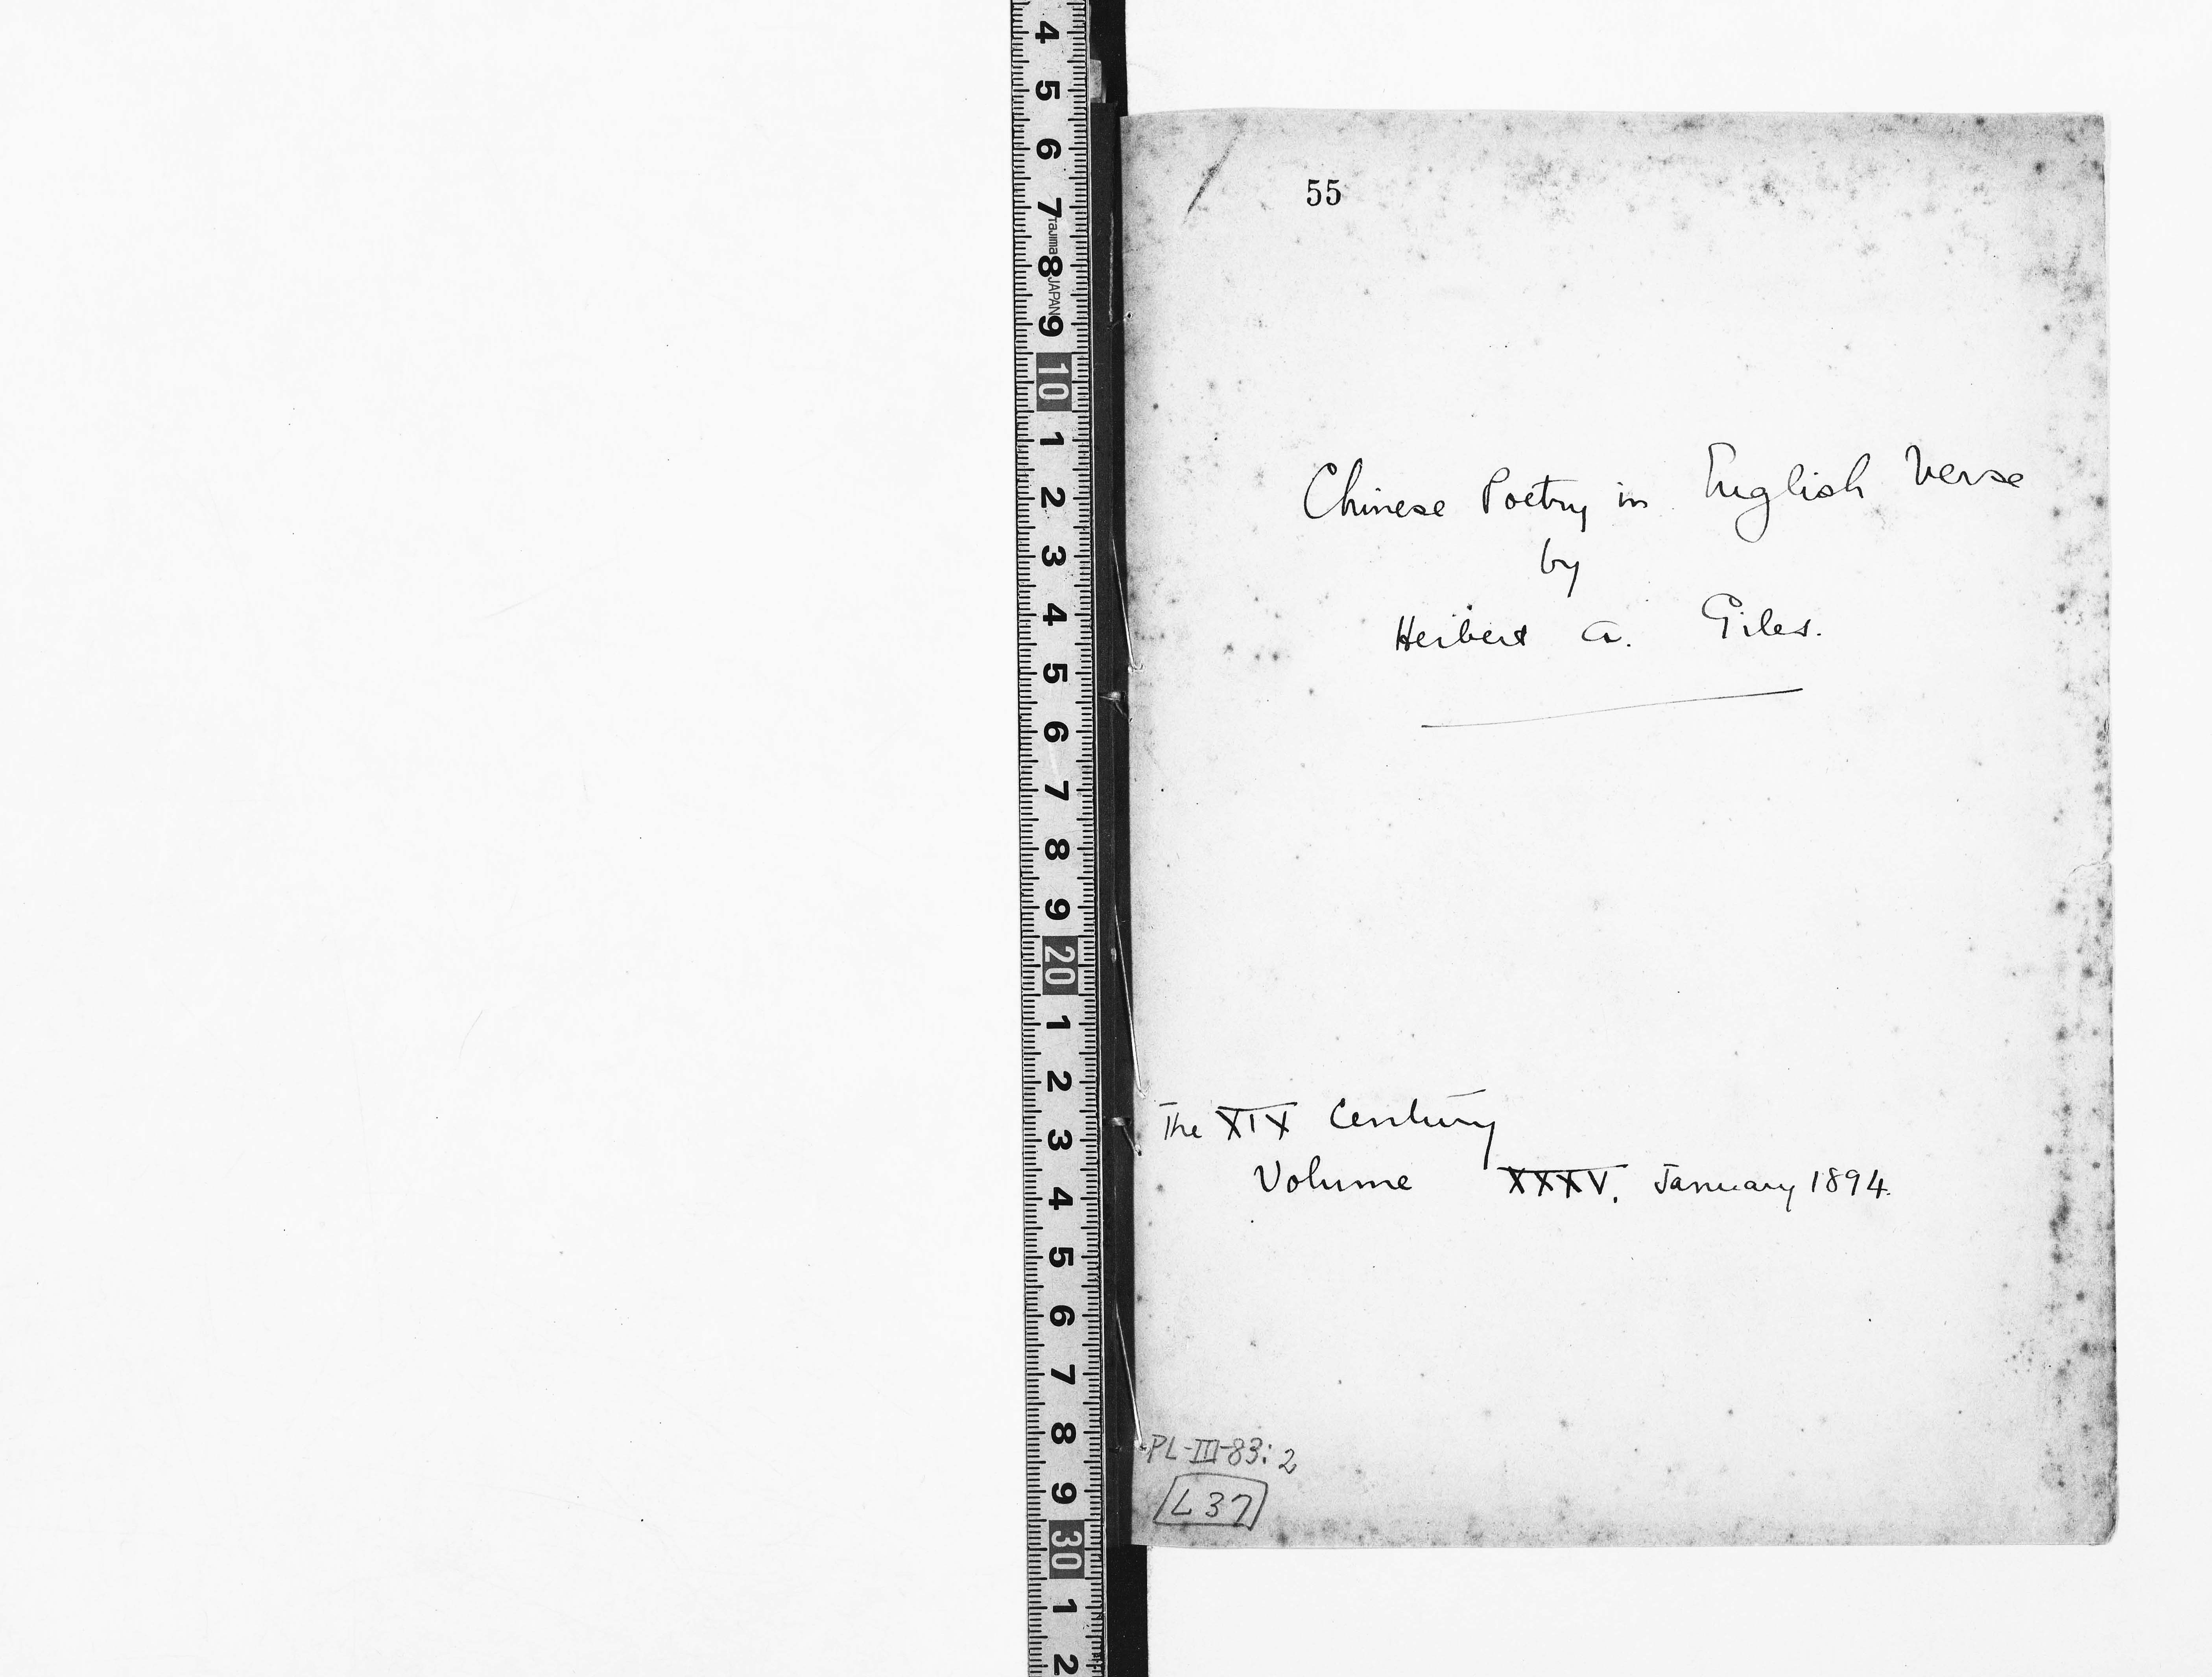 4
5
6
7
Tajima
8
JAPAN
9
10
1
2
3
4
5
6
7
8
9
20
1
2
3
4
5
6
7
8
9
30
1
2
55
Chinese Poetry in English Verse
by
Herbert A. Giles.
The XIX Century
Volume XXXV. January 1894.
PL-III-83:2
L37